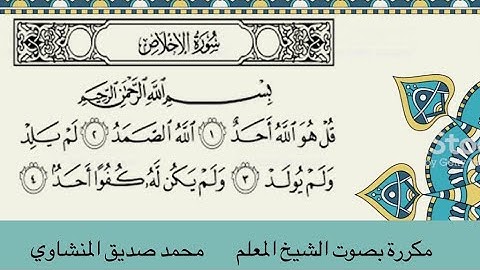 سُورَةُ الإِخْلَاصِ
بِسْمِ اللَّهِ الرَّحْمَٰنِ الرَّحِيمِ
قُلْ هُوَ اللَّهُ أَحَدٌ ١ اللَّهُ الصَّمَدُ ٢ لَمْ يَلِدْ
وَلَمْ يُولَدْ ٣ وَلَمْ يَكُن لَّهُ كُفُوًا أَحَدٌ ٤
مكررة بصوت الشيخ المعلم محمد صديق المنشاوي